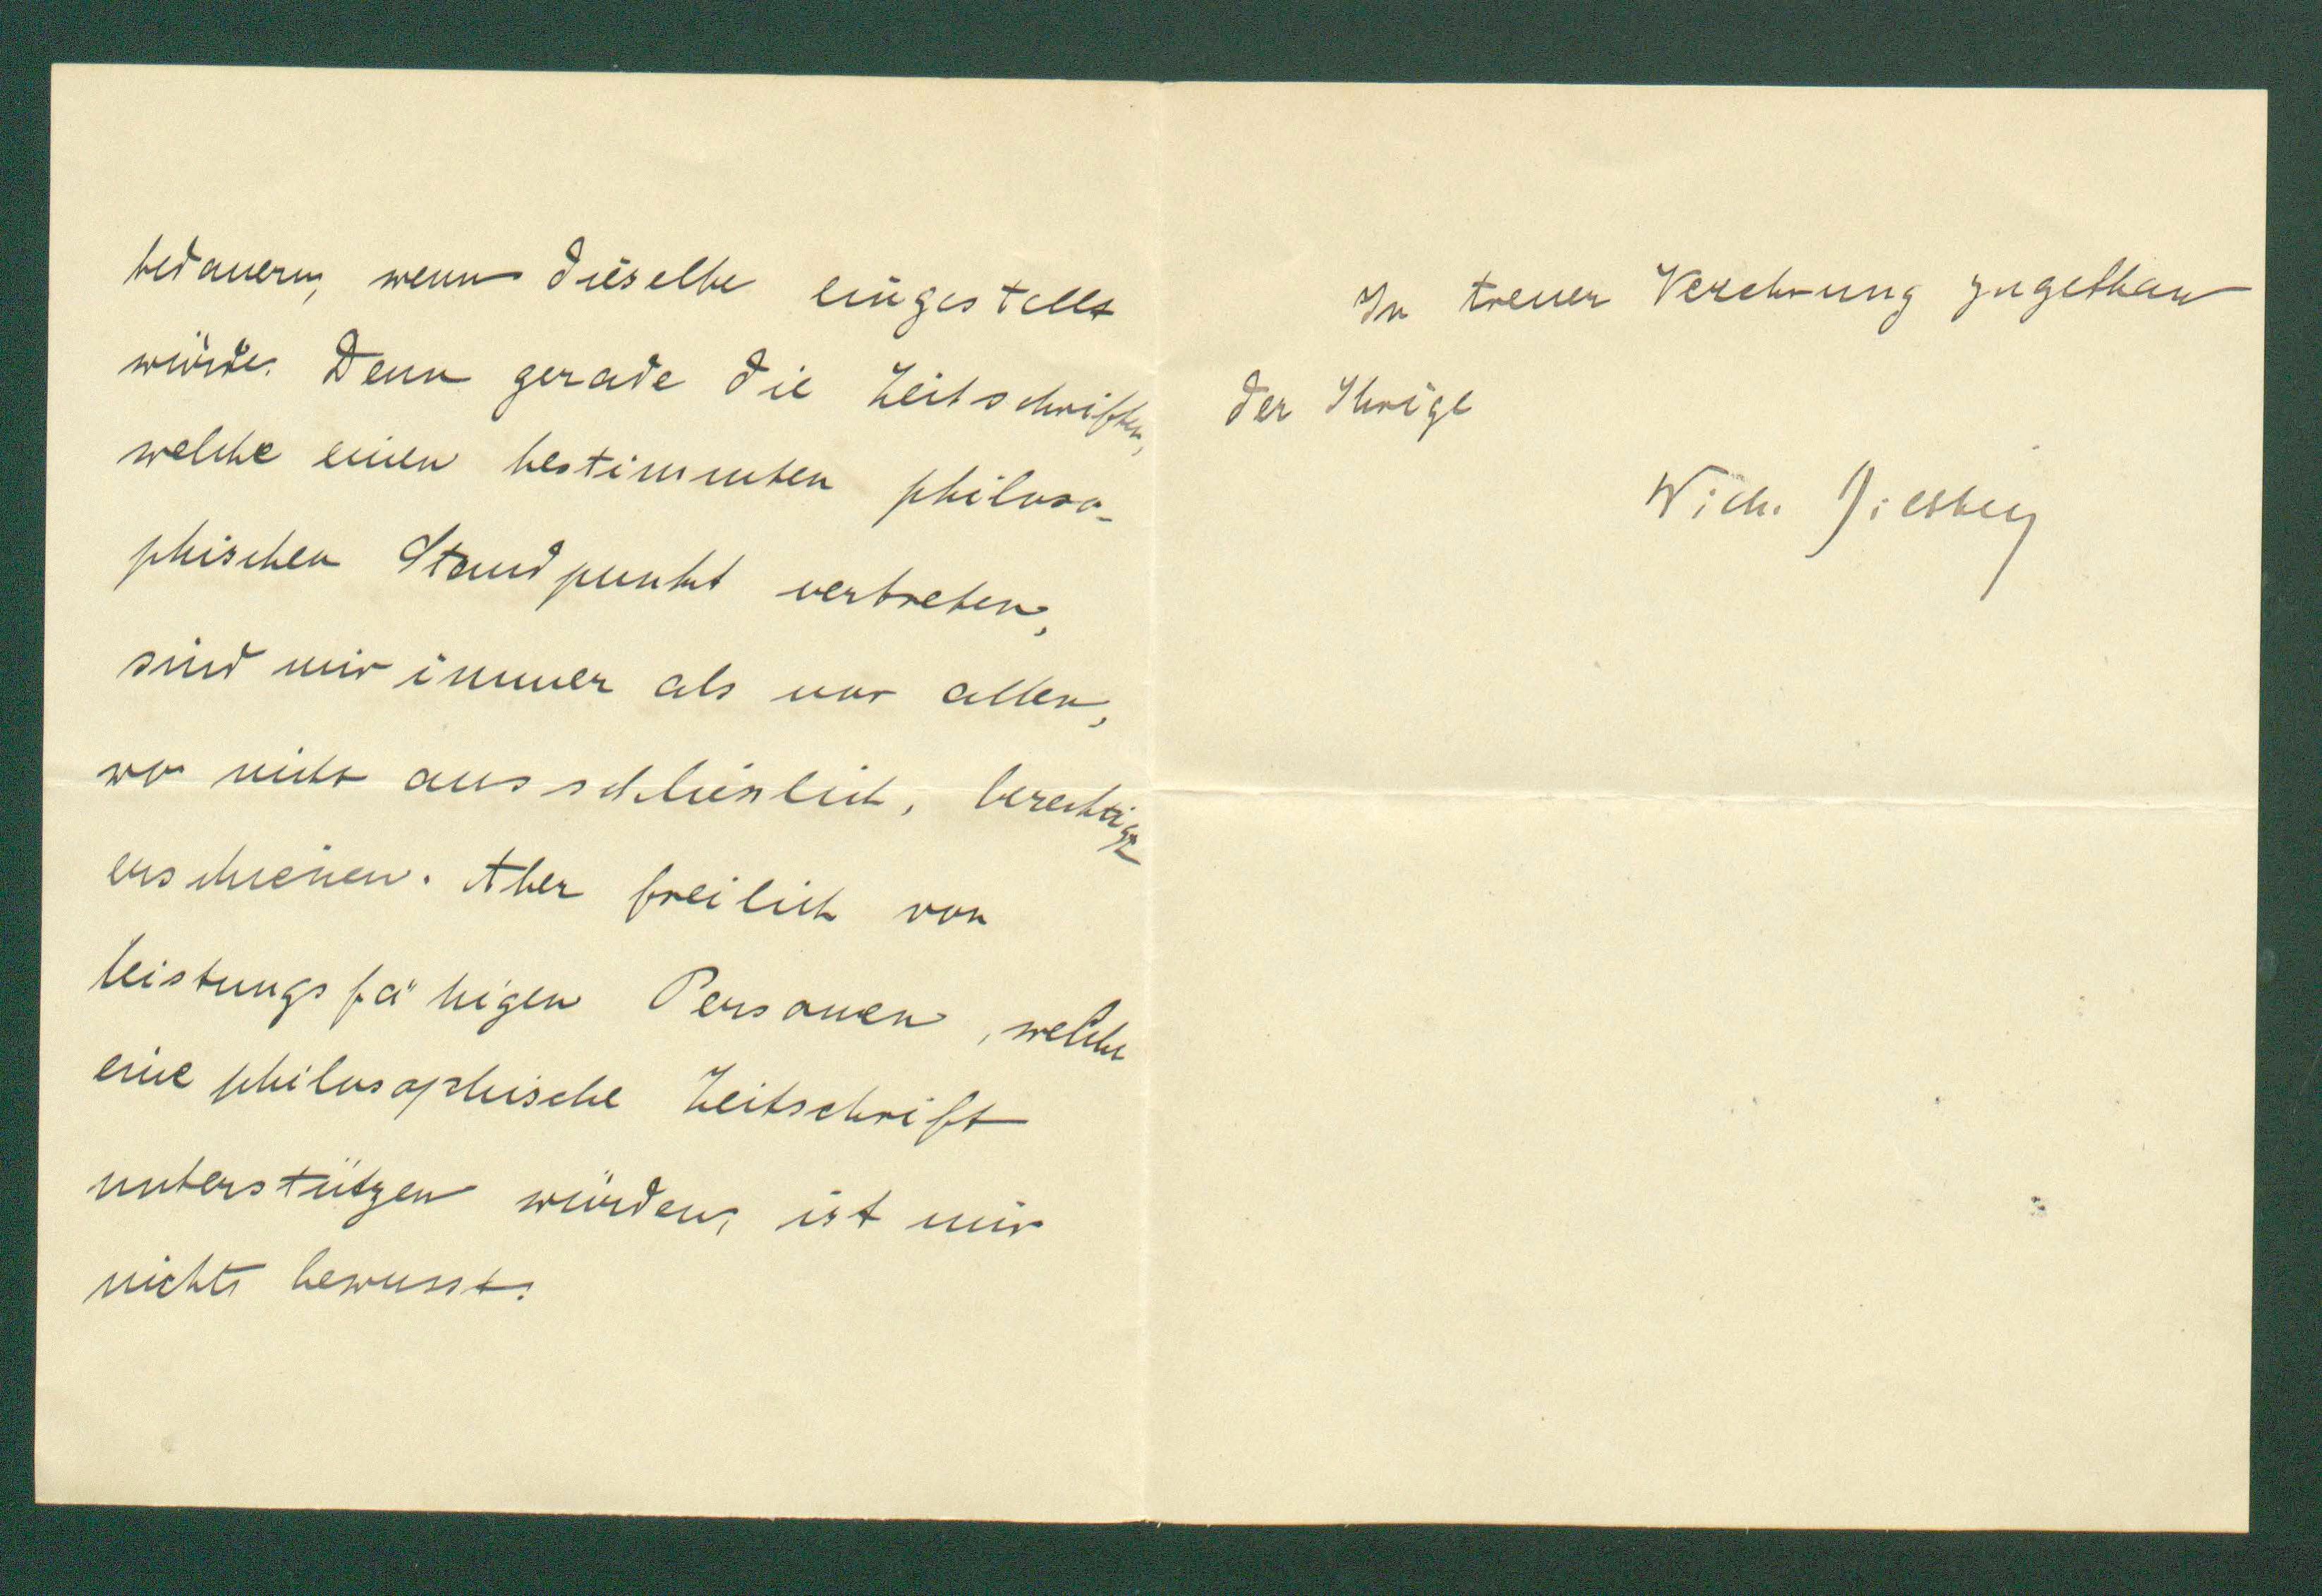 bedauern, wenn dieselbe eingestellt
würde. Denn gerade die Zeitschriften,
welche einen bestimmten philoso-
phischen Standpunkt vertreten,
sind mir immer als vor allen,
wo nicht ausschlieslich, berechtigt
erschienen. Aber freilich von
leistungsfähigen Personen, welche
eine philosophische Zeitschrift
unterstützen würden, ist mir
nichts bewusst.
In treuer Verehrung zugethan
der Ihrige
Wilh. Dilthey